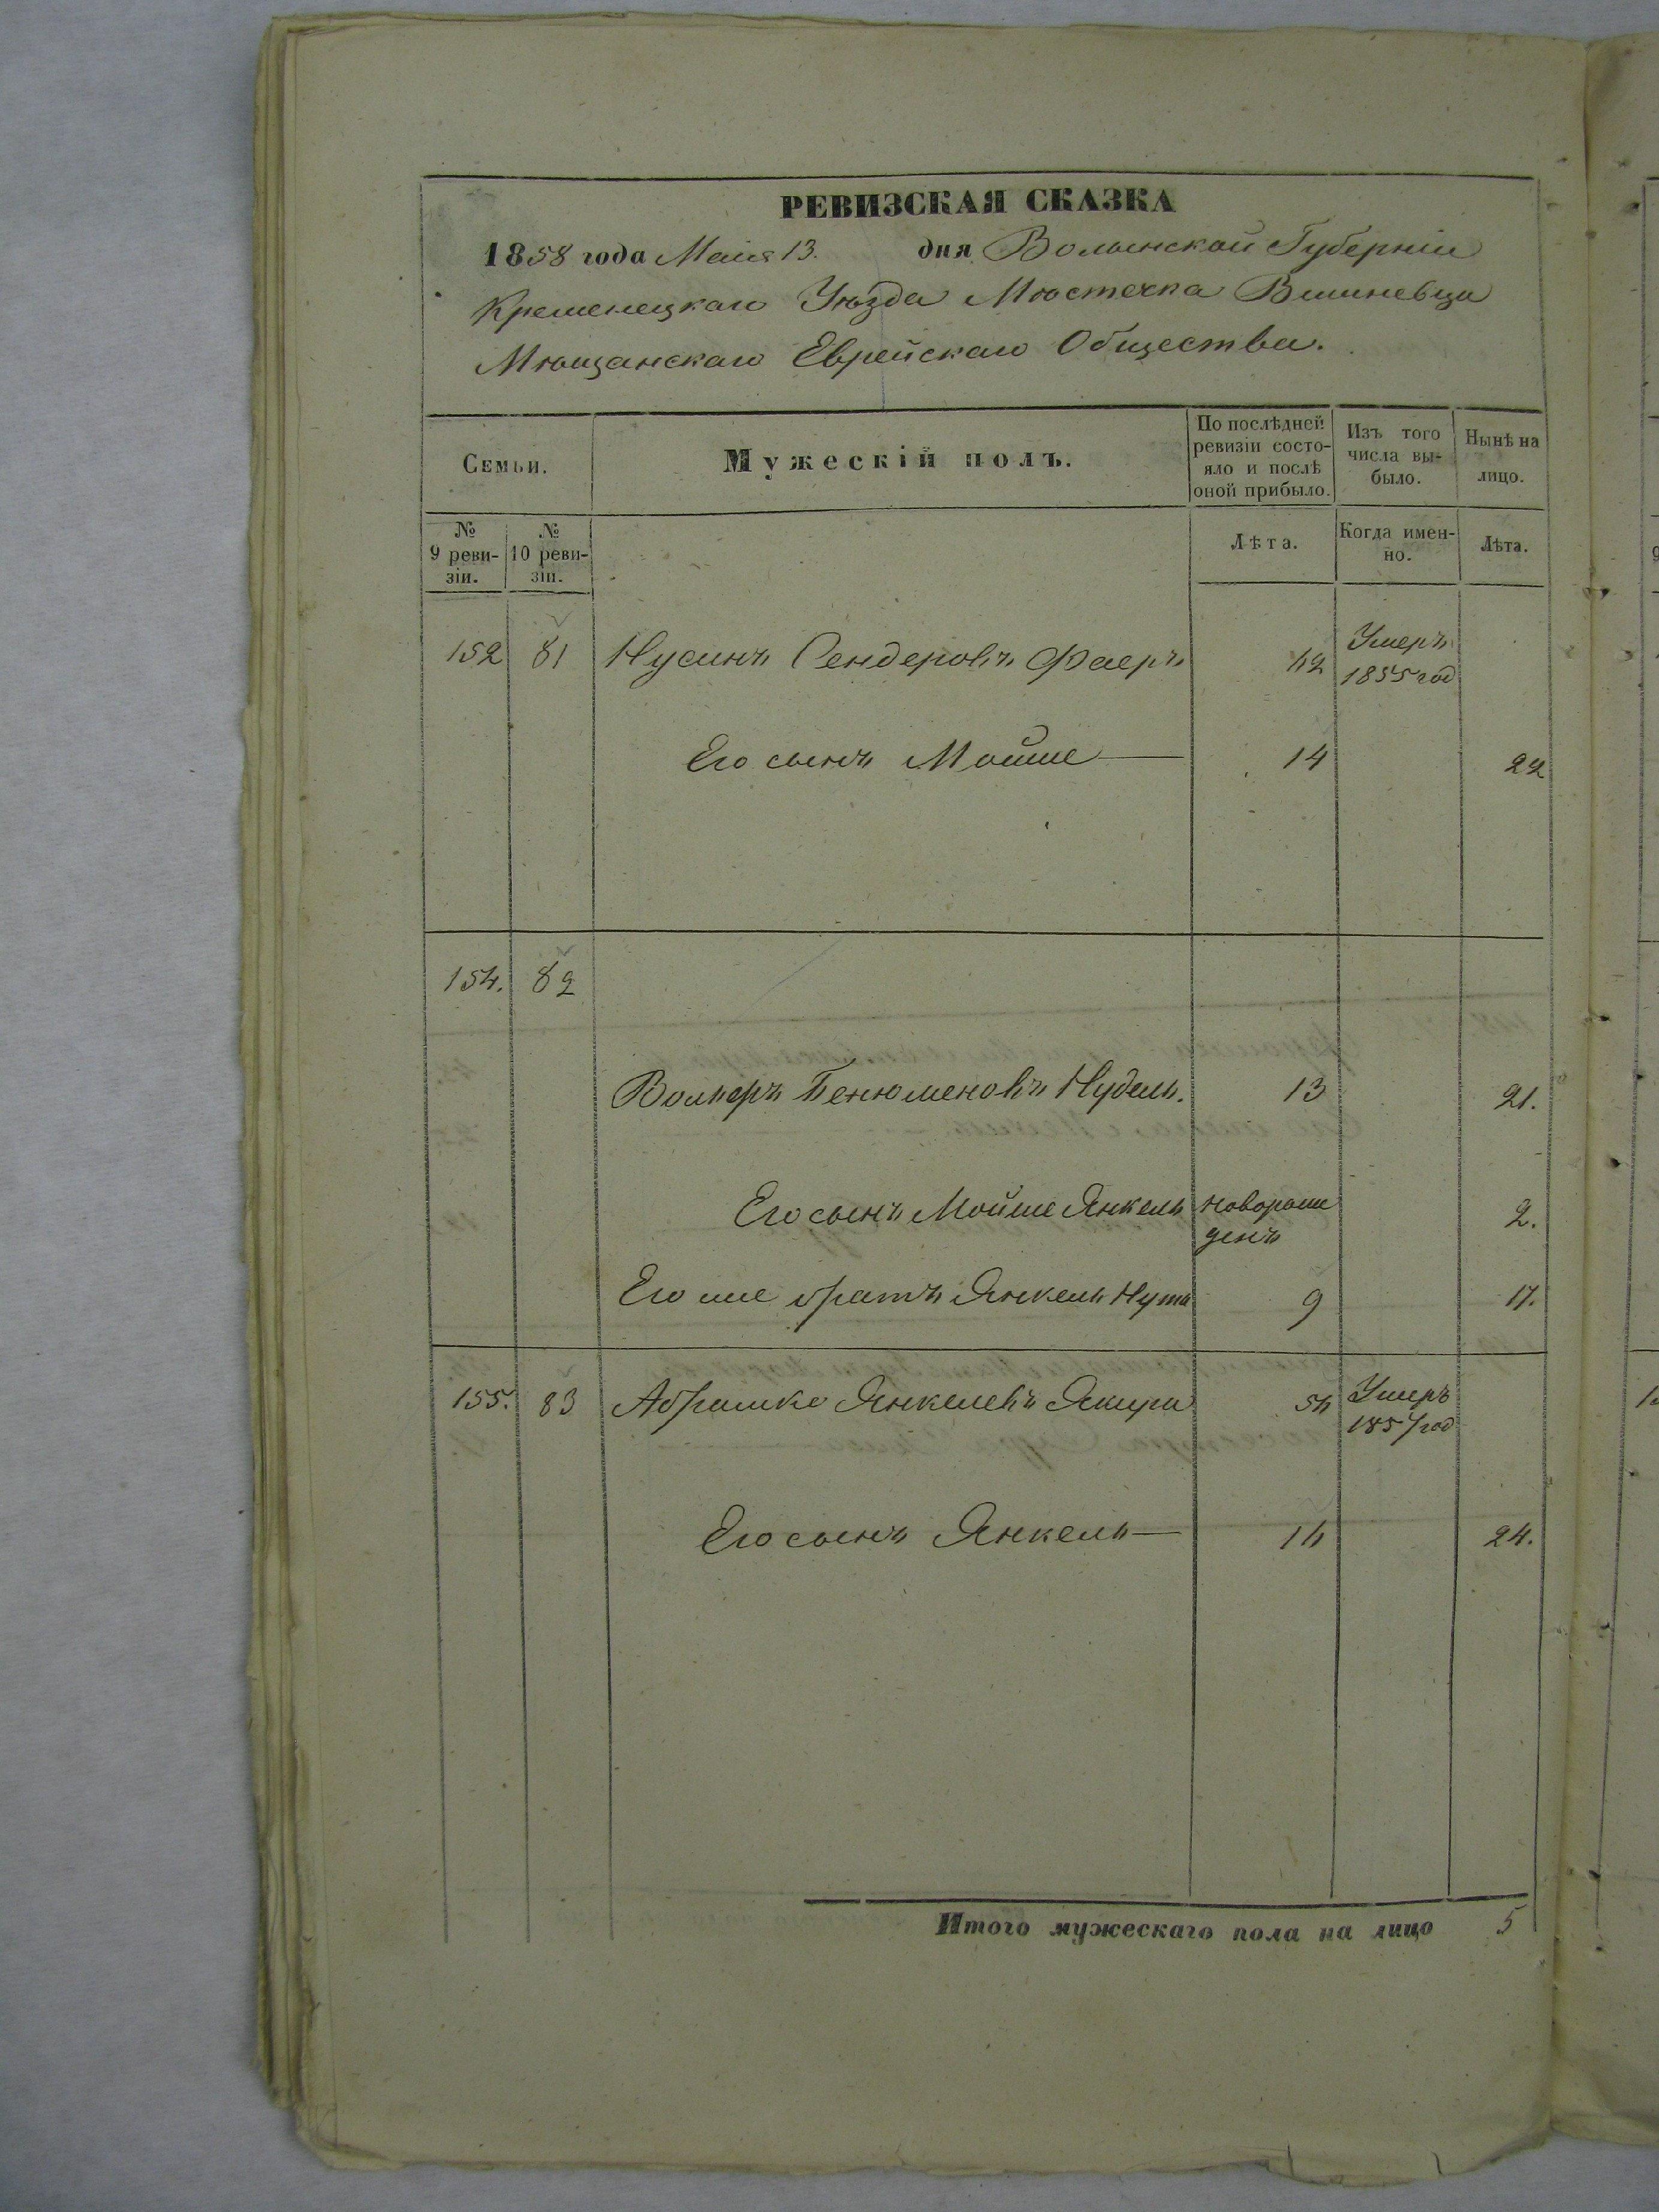 РЕВИЗСКАЯ СКАЗКА
1858 года Маія 13. дня Волынской Губерніи
Кременецкаго Уѣзда Мѣстечка Вишневца
Мѣщанскаго Еврейскаго Общества.
Семьи.
Мужескій полъ.
По послѣдней ревизіи состо-
яло и послѣ
оной прибыло.
Изъ того
числа вы-
было.
Нынѣ на
лицо.
№
9 реви-
зіи.
№
10 реви-
зіи.
Лѣта.
Когда имен-
но.
Лѣта.
152 81 Нусинъ Сендеровъ Фаеръ 42 Умеръ
1855 год
Его сынъ Мойше — 14 22
154. 82
Вольперъ Бенюменовъ Нудель. 13 21.
Его сынъ Мойше Янкель новорож
денъ 2.
Его же братъ Янкель Нута 9 17.
155. 83 Абрамко Янкелевъ Якира 54 Умеръ
1857 год
Его сынъ Янкель — 14 24.
Итого мужескаго пола на лицо 5